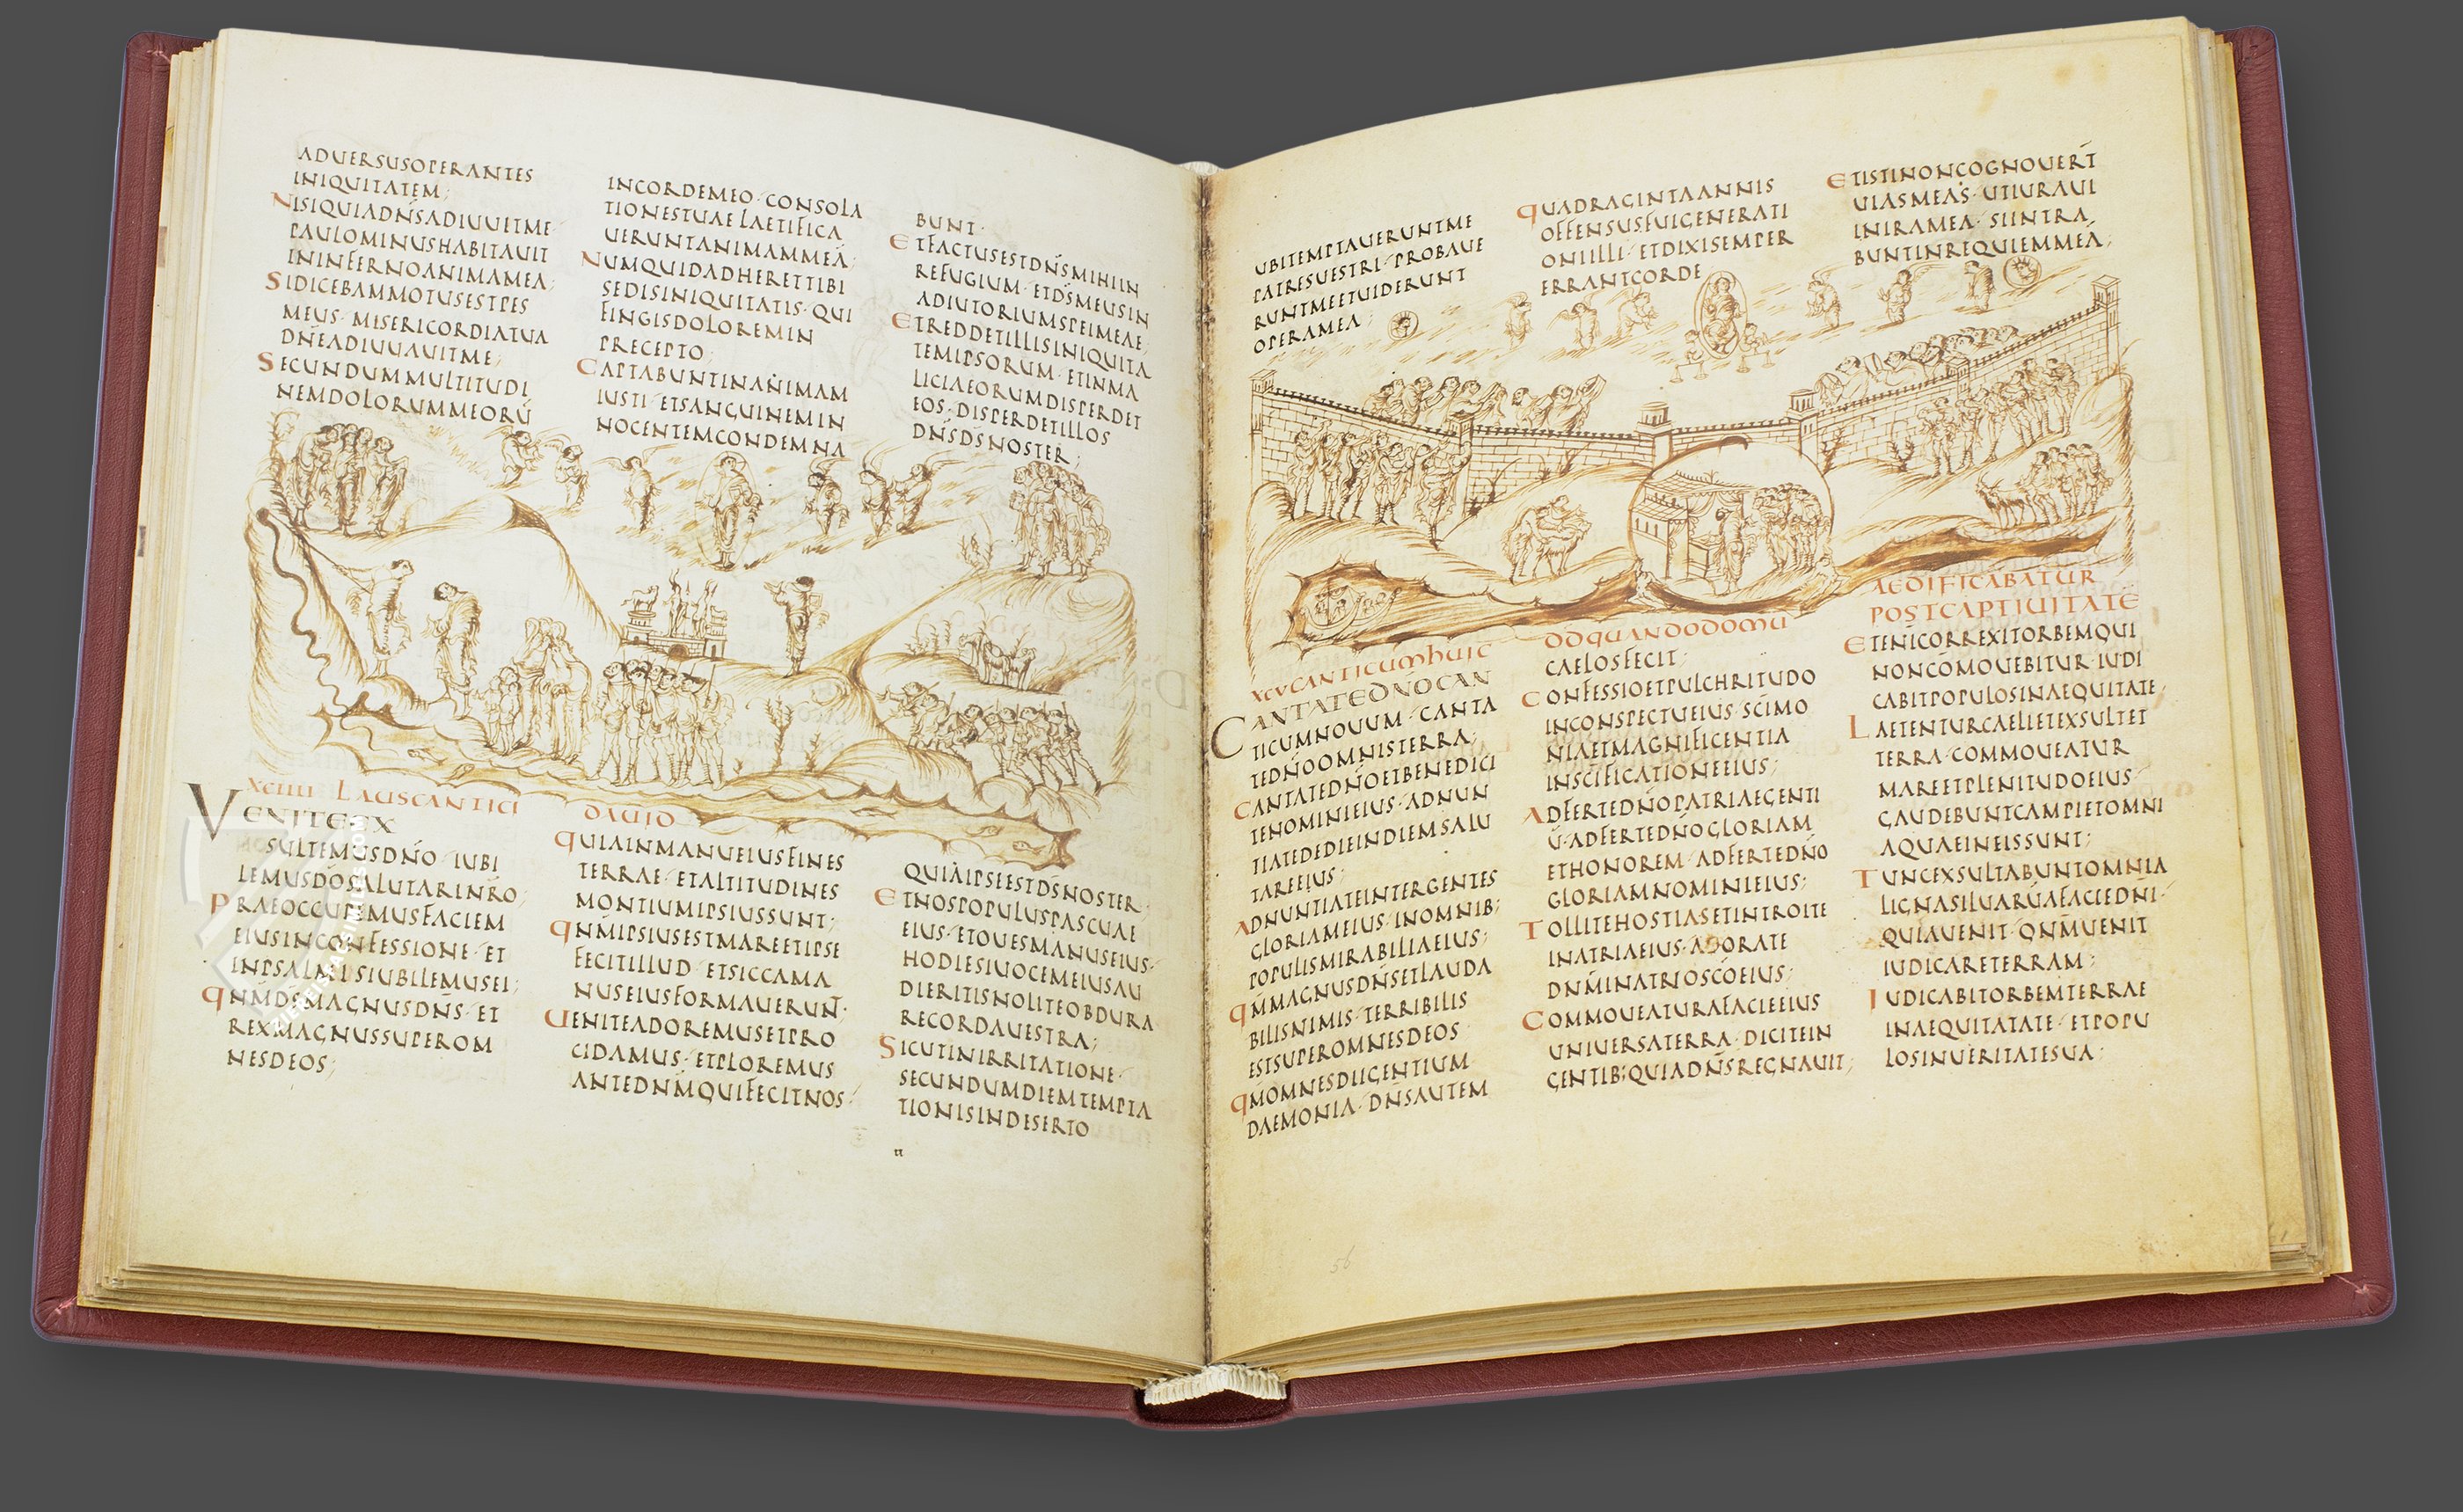 ADUERSUSOPERANTES
INIQUITATEM;
NISIQUIADN̄SADIUUITME·
PAULOMINUSHABITAUIT
ININFERNOANIMAMEA;
SIDICEBAMMOTUSESTPES
MEUS· MISERICORDIATUA
DN̄EADIUUAUITME;
SECUNDUMMULTITUDI
NEMDOLORUMMEORŪ
INCORDEMEO· CONSOLA
TIONESTUAELAETIFICA
UERUNTANIMAMMEĀ;
NUMQUIDADHERETTIBI
SEDISINIQUITATIS· QUI
FINGISDOLOREMIN
PRECEPTO;
CAPTABUNTINANIMAM
IUSTI· ETSANGUINEMIN
NOCENTEMCONDEMNA
BUNT·
ETFACTUSESTDN̄SMIHIIN
REFUGIUM· ETDS̄MEUSIN
ADIUTORIUMSPEIMEAE;
ETREDDETILLISINIQUITA
TEMIPSORUM· ETINMA
LICIAEORUMDISPERDET
EOS· DISPERDETILLOS
DN̄SDS̄NOSTER;
XCIIII LAUSCANTICI
DAUID
VENITEEX
SULTEMUSDN̄O· IUBI
LEMUSDOSALUTARINR̄O;
PRAEOCCUPEMUSFACIEM
EIUSINCONFESSIONE· ET
INPSALMISIUBILEMUSEI;
QNM̄DS̄MAGNUSDN̄S· ET
REXMAGNUSSUPEROM
NESDEOS;
QUIAINMANUEIUSFINES
TERRAE· ETALTITUDINES
MONTIUMIPSIUSSUNT;
QNM̄IPSIUSESTMAREETIPSE
FECITILLUD· ETSICCAMA
NUSEIUSFORMAUERUN̄T·
UENITEADOREMUSETPRO
CIDAMUS· ETPLOREMUS
ANTEDNM̄QUIFECITNOS;
QUIAIPSEESTDS̄NOSTER·
ETNOSPOPULUSPASCUAE
EIUS· ETOUESMANUSEIUS·
HODIESIUOCEMEIUSAU
DIERITISNOLITEOBDURA
RECORDAUESTRA;
SICUTINIRRITATIONE·
SECUNDUMDIEMTEMPTA
TIONISINDESERTO
UBITEMPTAUERUNTME
PATRESUESTRI· PROBAUE
RUNTMEETUIDERUNT
OPERAMEA;
QUADRAGINTAANNIS
OFFENSUSFUIGENERATI
ONIILLI· ETDIXISEMPER
ERRANTCORDE
ETISTINONCOGNOUERT̄
UIASMEAS· UTIURAUI
INIRAMEA· SIINTRA
BUNTINREQUIEMMEĀ;
XCVCANTICUMHUIC
ODQUANDODOMU
AEDIFICABATUR
POSTCAPTIUITATĒ
CANTATEDN̄OCAN
TICUMNOUUM· CANTA
TEDN̄OOMNISTERRA;
CANTATEDN̄OETBENEDICI
TENOMINIEIUS· ADNUN
TIATEDEDIEINDIEMSALU
TAREEIUS;
ADNUNTIATEINTERGENTES
GLORIAMEIUS· INOMNIB;
POPULISMIRABILIAEIUS;
QM̄MAGNUSDN̄SETLAUDA
BILISNIMIS· TERRIBILIS
ESTSUPEROMNESDEOS·
QM̄OMNESDIIGENTIUM
DAEMONIA· DN̄SAUTEM
CAELOSFECIT;
CONFESSIOETPULCHRITUDO
INCONSPECTUEIUS· SCĪMO
NIAETMAGNIFICENTIA
INSCĪFICATIONEEIUS;
ADFERTEDN̄OPATRIAEGENTI
Ū· ADFERTEDN̄OGLORIAM
ETHONOREM· ADFERTEDN̄O
GLORIAMNOMINIEIUS;
TOLLITEHOSTIASETINTROITE
INATRIAEIUS· ADORATE
DNM̄INATRIOSCŌEIUS;
COMMOUEATURAFACIEEIUS
UNIUERSATERRA· DICITEIN
GENTIB;QUIADN̄SREGNAUIT;
ETENI̅CORREXITORBEMQUI
NONCŌMOUEBITUR· IUDI
CABITPOPULOSINAEQUITATE;
LAETENTURCAELIETEXSULTET
TERRA· COMMOUEATUR
MAREETPLENITUDOEIUS·
GAUDEBUNTCAMPIETOMNI
AQUAEINEISSUNT;
TUNCEXSULTABUNTOMNIA
LIGNASILUARŪAFACIEDN̄I·
QUIAUENIT· QNM̄UENIT
IUDICARETERRAM;
IUDICABITORBEMTERRAE
INAEQUITATATE· ETPOPU
LOSINUERITATESUA;
56